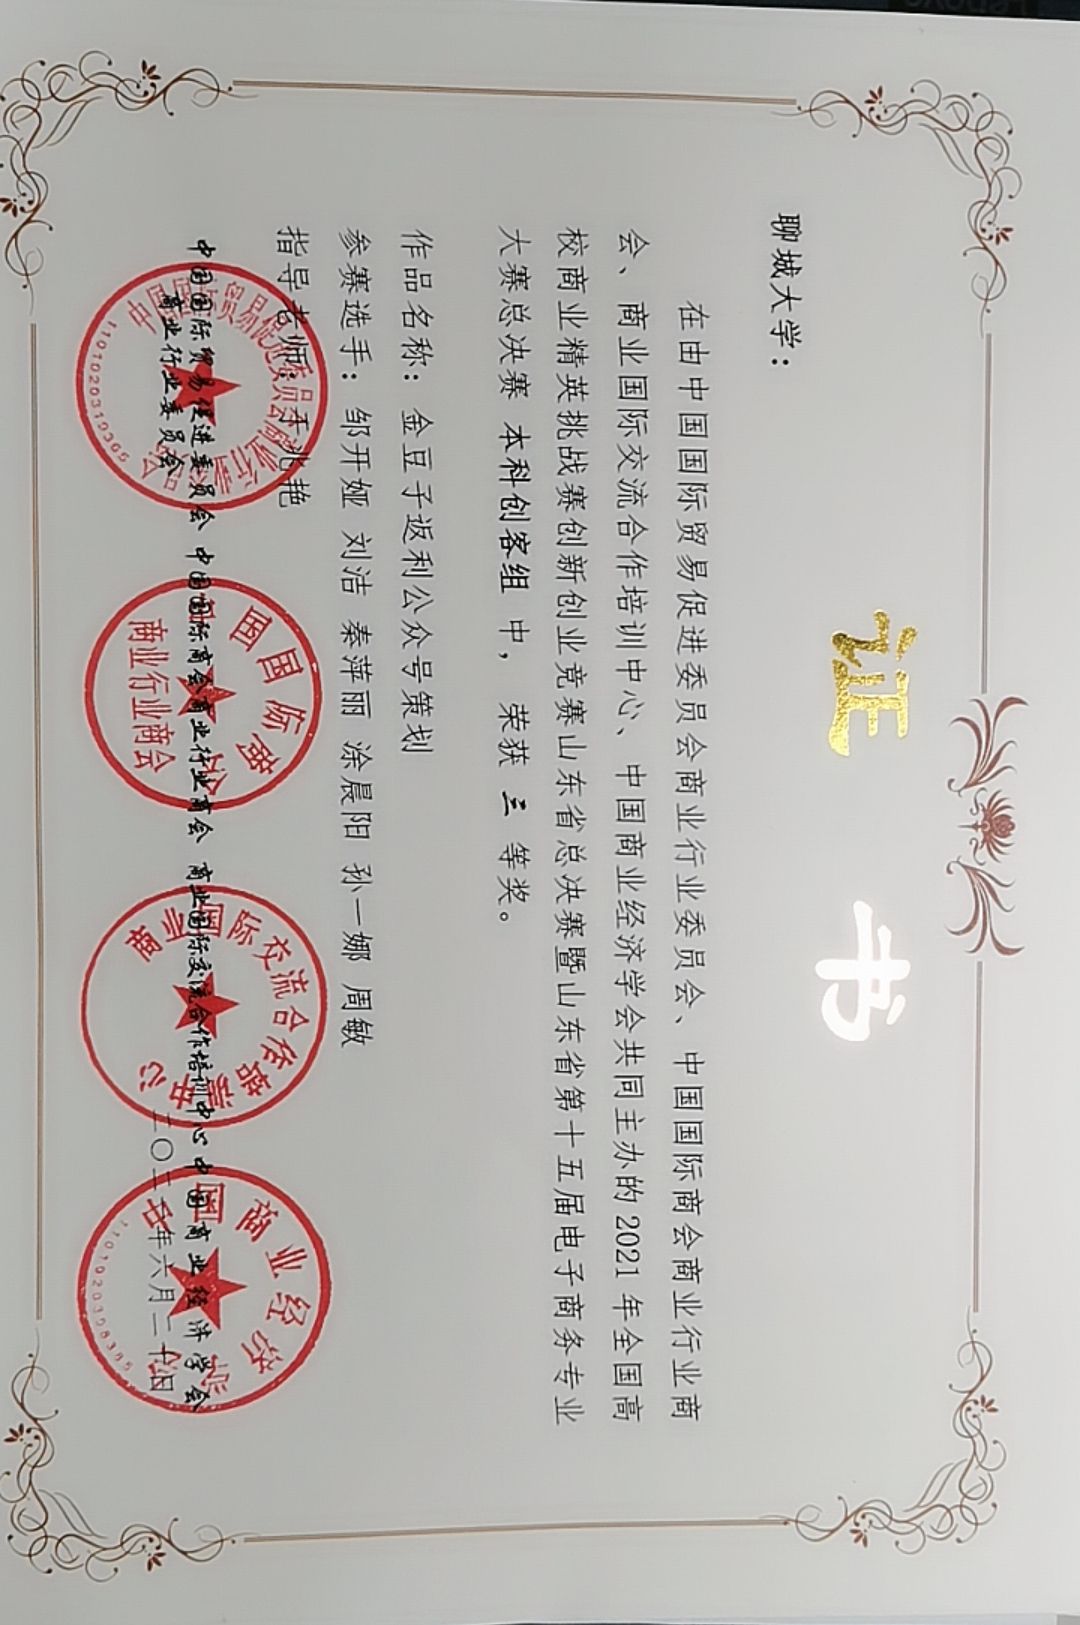 证 书
聊城大学：
在由中国国际贸易促进委员会商业行业委员会、中国国际商会商业行业商
会、商业国际交流合作培训中心、中国商业经济学会共同主办的2021年全国高
校商业精英挑战赛创新创业竞赛山东省总决赛暨山东省第十五届电子商务专业
大赛总决赛 本科创客组 中， 荣获 三 等奖。
作品名称：金豆子返利公众号策划
参赛选手：邹开娅 刘洁 秦萍丽 涂晨阳 孙一娜 周敏
指导老师：于兆艳
中国国际贸易促进委员会 中国国际商会商业行业商会 商业国际交流合作培训中心 中国商业经济学会
商业行业委员会
二〇二一年六月二十日
中国国际贸易促进委员会商业行业委员会
1101020319365
中国国际商会
商业行业商会
商业国际交流合作培训中心
中国商业经济学会